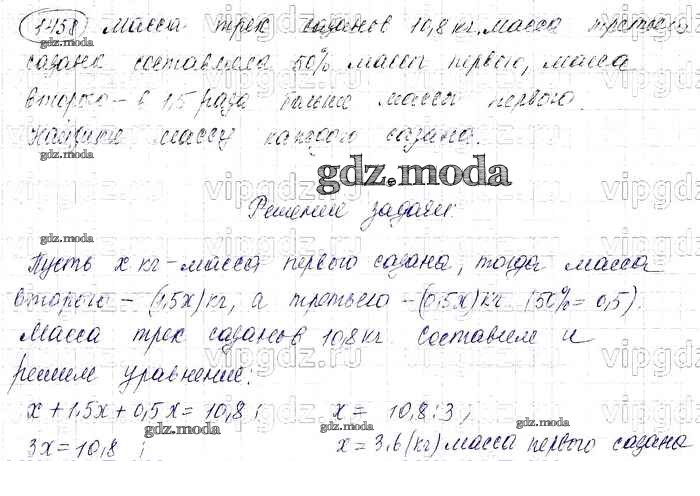 1458) Масса трех сазанов 10,8 кг. Масса третьего
сазана составляла 50% массы первого, масса
второго – в 1,5 раза больше массы первого.
Найдите массу каждого сазана.
gdz.moda
Решение задачи:
Пусть x кг – масса первого сазана, тогда масса
второго – (1,5x) кг, а третьего – (0,5x) кг (50% = 0,5).
Масса трех сазанов 10,8 кг. Составим и
решим уравнение:
x + 1,5x + 0,5x = 10,8 ; x = 10,8 : 3 ;
3x = 10,8 ; x = 3,6 (кг) масса первого сазана